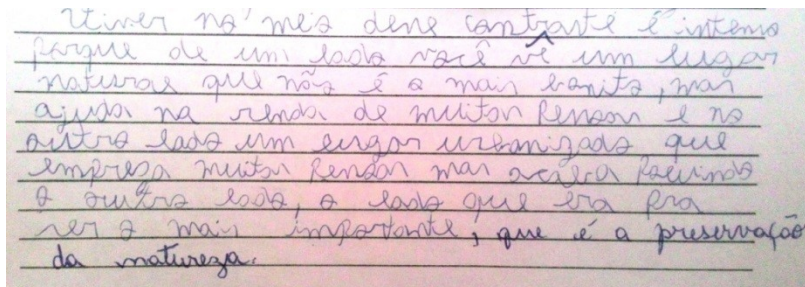 Viver no meio desse contraste é intenso
porque de um lado você vê um lugar
natural que não é o mais bonito, mas
ajuda na renda de muitas pessoas e no
outro lado um lugar urbanizado que
emprega muitas pessoas mas acaba poluindo
o outro lado, o lado que era pra
ser o mais importante, que é a preservação
da natureza.